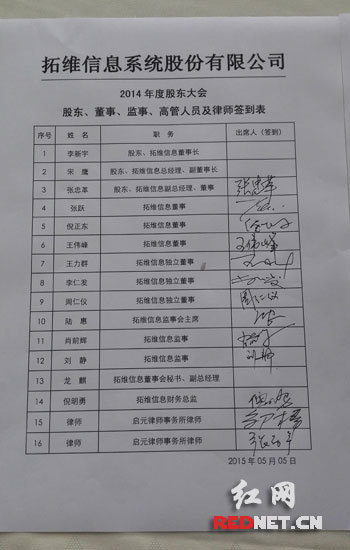 拓维信息系统股份有限公司
2014 年度股东大会
股东、董事、监事、高管人员及律师签到表
序号 姓 名 职 务 出席人（签到）
1 李新宇 股东、拓维信息董事长
2 宋 鹰 股东、拓维信息总经理、副董事长
3 张忠革 股东、拓维信息副总经理、董事 张忠革
4 张跃 拓维信息董事
5 倪正东 拓维信息董事
6 王伟峰 拓维信息董事 王伟峰
7 王力群 拓维信息独立董事
8 李仁发 拓维信息独立董事
9 周仁仪 拓维信息独立董事 周仁仪
10 陆 惠 拓维信息监事会主席
11 肖前辉 拓维信息监事
12 刘 静 拓维信息监事
13 龙 麒 拓维信息董事会秘书、副总经理
14 倪明勇 拓维信息财务总监
15 律师 启元律师事务所律师
16 律师 启元律师事务所律师
2015 年 05 月 05 日
红网
REDNET.CN